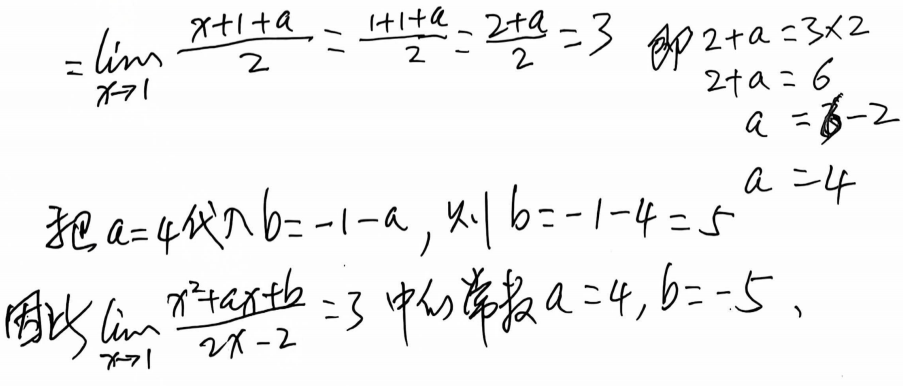 =lim x→1 (x+1+a)/2 = (1+1+a)/2 = (2+a)/2 = 3 即 2+a=3×2
2+a=6
a=6-2
a=4
把a=4代入b=-1-a，则b=-1-4=5
因此 lim x→1 (x²+ax+b)/(2x-2) =3 中的常数a=4,b=-5、